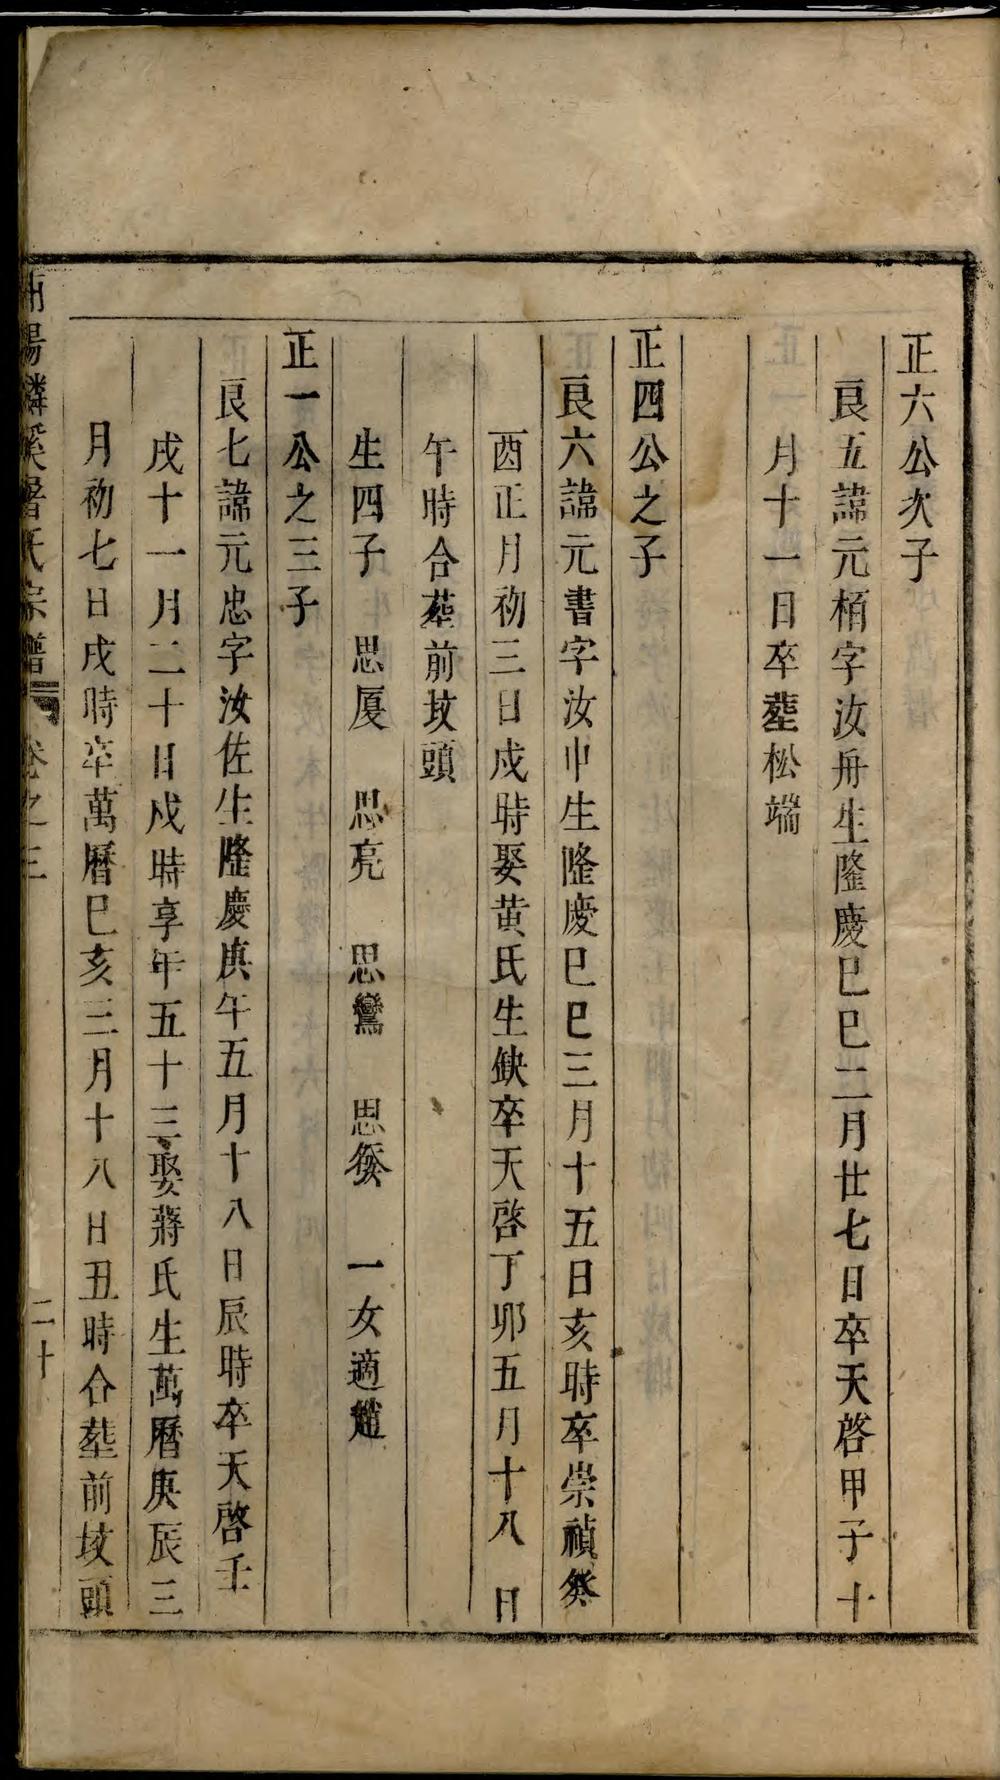 正六公次子
良五諱元栢字汝舟生隆慶巳巳二月廿七日卒天啓甲子十
一月十一日卒塟松端
正四公之子
良六諱元書字汝中生隆慶巳巳三月十五日亥時卒崇禎癸
酉正月初三日戌時娶黄氏生缺卒天啓丁卯五月十八日
午時合塟前坟頭
生四子 思厦 思亮 思鸞 思癸 一女適趙
正一公之三子
良七諱元忠字汝佐生隆慶庚午五月十八日辰時卒天啓壬
戌十一月二十日戌時享年五十三娶蔣氏生萬曆庚辰三
月初七日戌時卒萬曆巳亥三月十八日丑時合塟前坟頭
陽 溪 氏宗譜 卷之三 二十